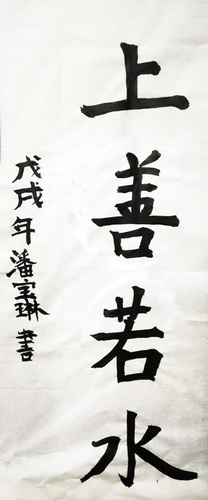 上善若水
戊戌年潘宝琳書